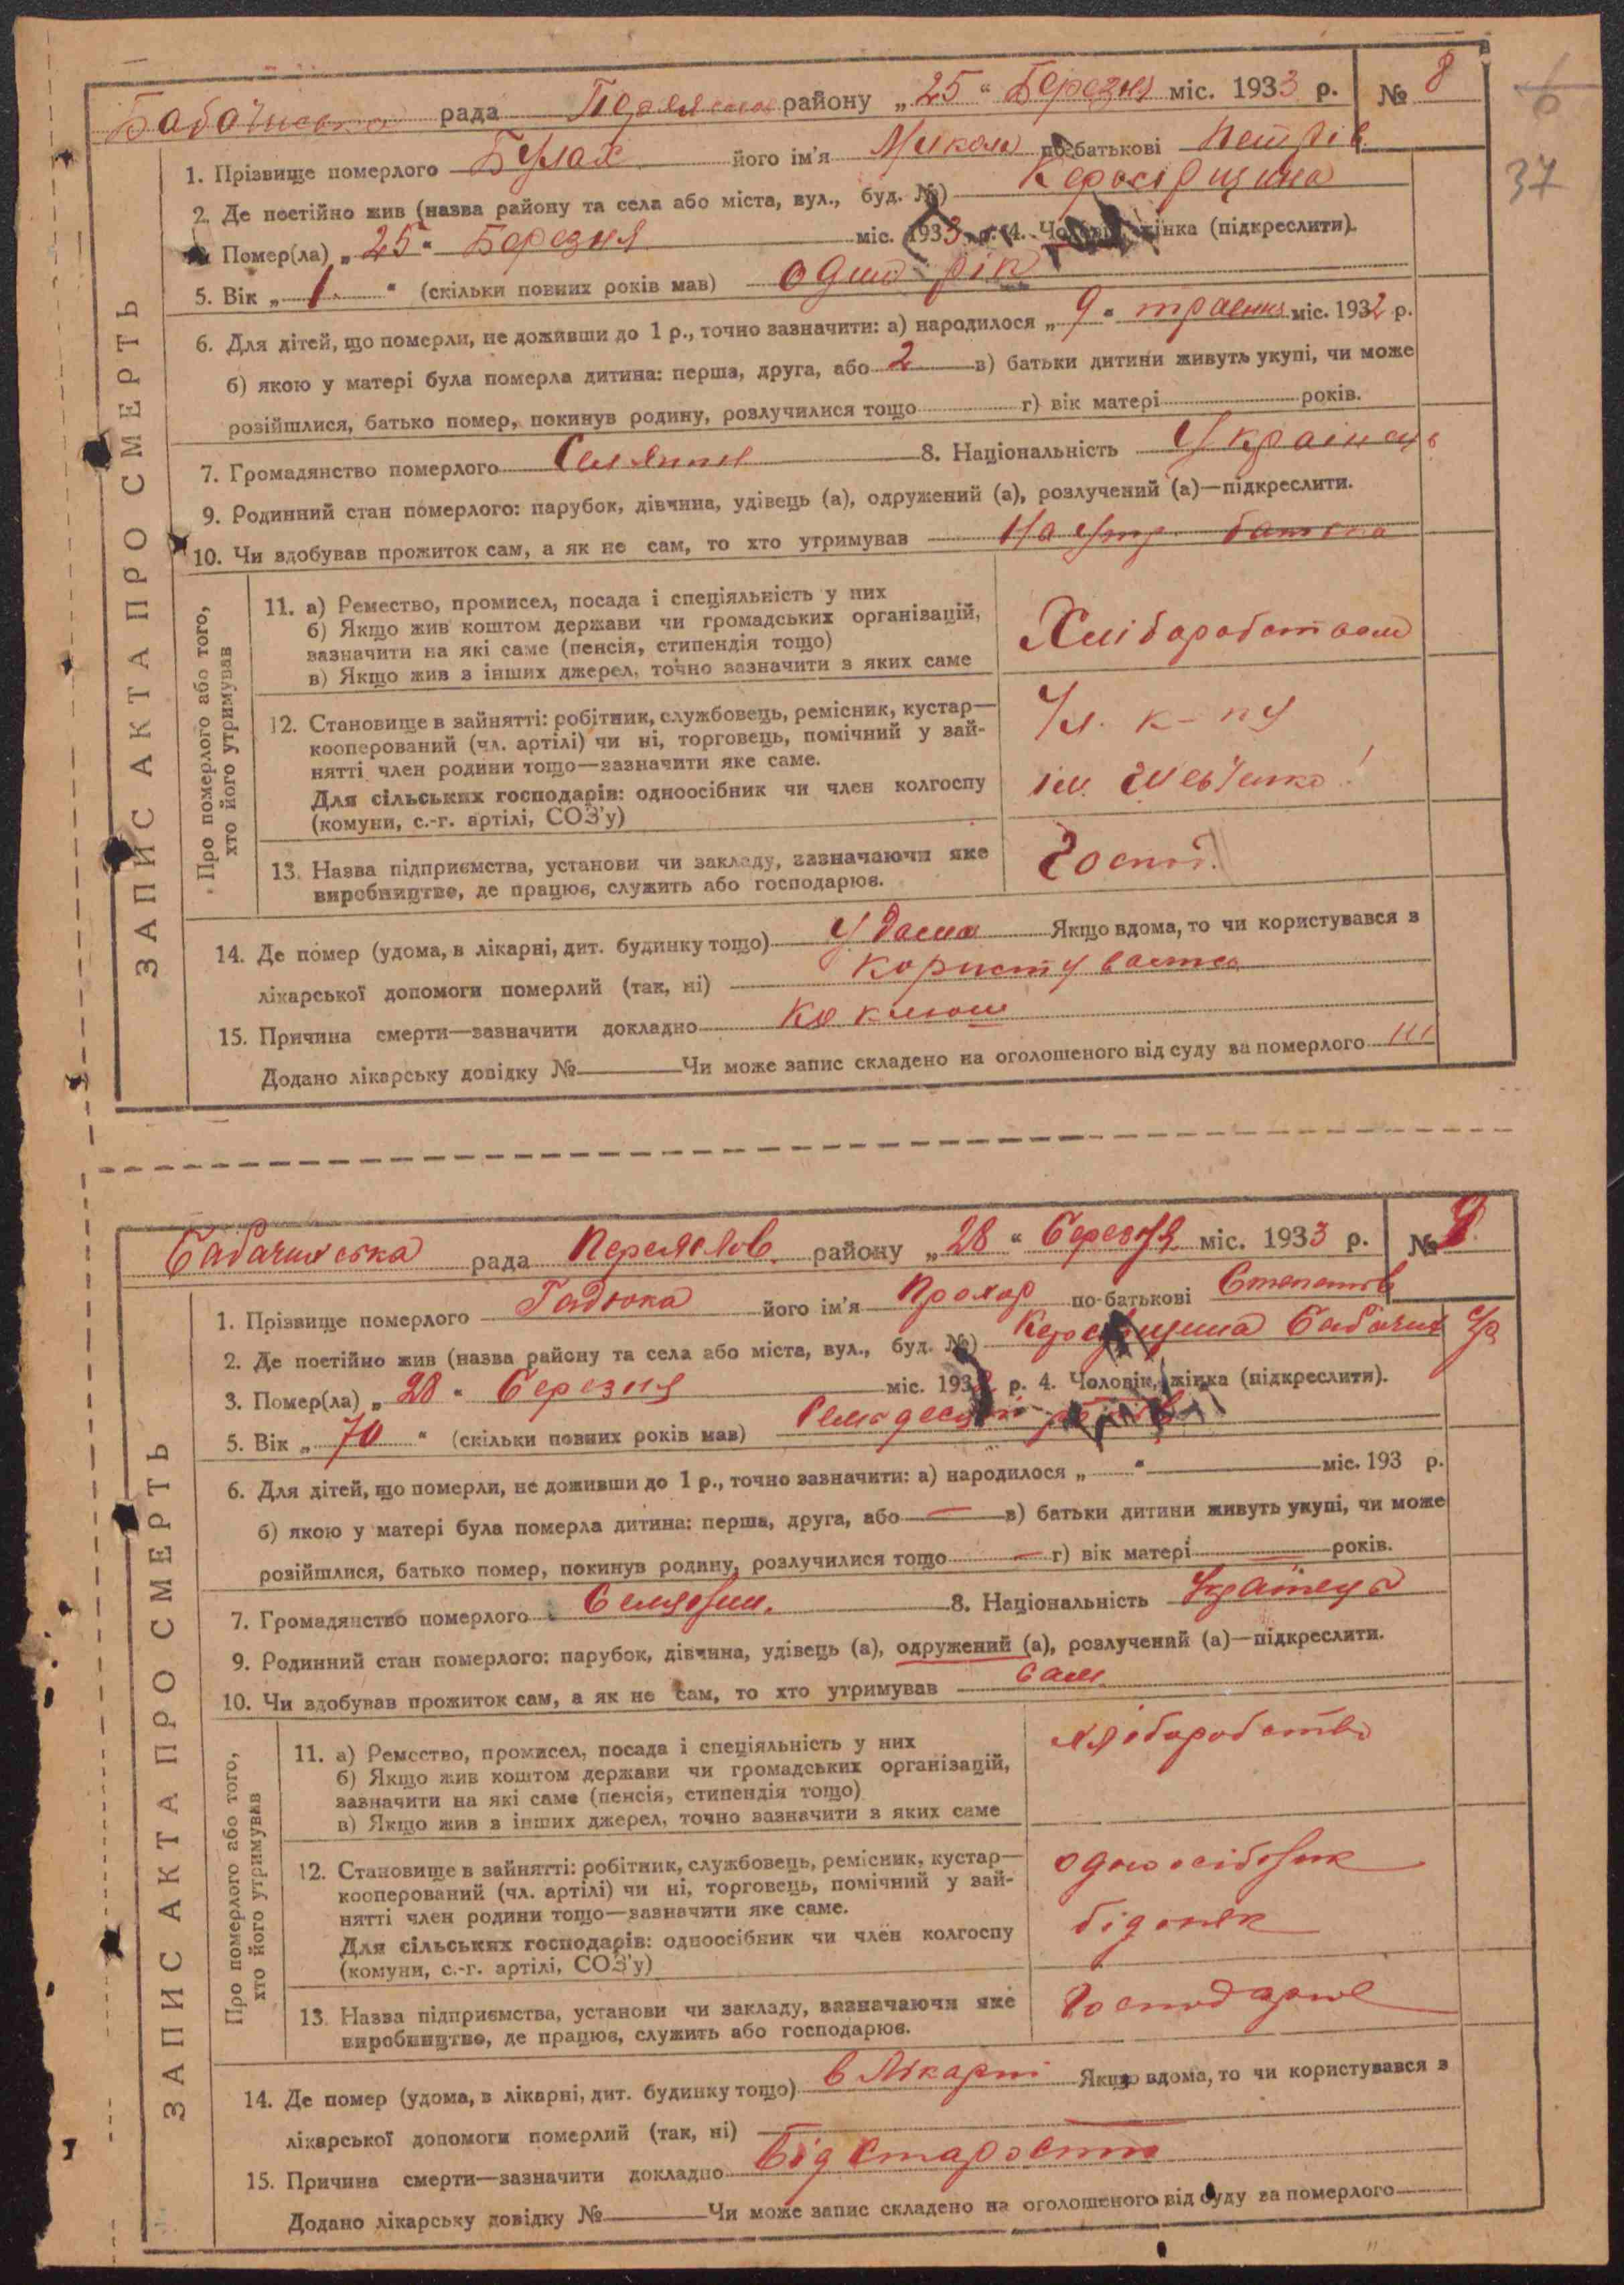 Бабачиська рада Переясла району „25“ Березня міс. 1933 р. № 8
6
37
1. Прізвище померлого Булах його ім’я Микола по-батькові Петрів
2. Де постійно жив (назва району та села або міста, вул., буд. №)
Помер(ла) „25“ Березня міс. 1933 р. 4. Чоловік, жінка (підкреслити).
5. Вік „1.“ (скільки повних років мав) один рік
6. Для дітей, що померли, не доживши до 1 р., точно зазначити: а) народилося „9“ травня міс. 1932 р.
б) якою у матері була померла дитина: перша, друга, або 2 в) батьки дитини живуть укупі, чи може
розійшлися, батько помер, покинув родину, розлучилися тощо г) вік матері років.
7. Громадянство померлого Селянин 8. Національність Українець
9. Родинний стан померлого: парубок, дівчина, удівець (а), одружений (а), розлучений (а)—підкреслити.
10. Чи здобував прожиток сам, а як не сам, то хто утримував На утр. батька
ЗАПИС АКТА ПРО СМЕРТЬ
Про померлого або того,
хто його утримував
11. а) Ремество, промисел, посада і спеціяльність у них
б) Якщо жив коштом держави чи громадських організацій,
зазначити на які саме (пенсія, стипендія тощо)
в) Якщо жив з інших джерел, точно зазначити з яких саме
Хліборобством
12. Становище в зайнятті: робітник, службовець, ремісник, кустар—
кооперований (чл. артілі) чи ні, торговець, помічний у зай-
нятті член родини тощо—зазначити яке саме.
Для сільських господарів: одноосібник чи член колгоспу
(комуни, с.-г. артілі, СОЗ’у)
Чл. к-пу
ім. Шевченко
13. Назва підприємства, установи чи закладу, зазначаючи яке
виробництво, де працює, служить або господарює.
Господ.
14. Де помер (удома, в лікарні, дит. будинку тощо) У дома Якщо вдома, то чи користувався з
лікарської допомоги померлий (так, ні) користувався
15. Причина смерти—зазначити докладно коклюш
Додано лікарську довідку № Чи може запис складено на оголошеного від суду за померлого
Бабачиська рада Переяслов. району „28“ Березня міс. 1933 р. № 9
1. Прізвище померлого Гадюка його ім’я Прохор по-батькові Степанов
2. Де постійно жив (назва району та села або міста, вул., буд. №)
3. Помер(ла) „28“ Березня міс. 193 р. 4. Чоловік, жінка (підкреслити).
5. Вік „70“ (скільки повних років мав) Семидесят
6. Для дітей, що померли, не доживши до 1 р., точно зазначити: а) народилося „ “ міс. 193 р.
б) якою у матері була померла дитина: перша, друга, або — в) батьки дитини живуть укупі, чи може
розійшлися, батько помер, покинув родину, розлучилися тощо — г) вік матері — років.
7. Громадянство померлого Селянин. 8. Національність Українець
9. Родинний стан померлого: парубок, дівчина, удівець (а), одружений (а), розлучений (а)—підкреслити.
10. Чи здобував прожиток сам, а як не сам, то хто утримував сам.
ЗАПИС АКТА ПРО СМЕРТЬ
Про померлого або того,
хто його утримував
11. а) Ремество, промисел, посада і спеціяльність у них
б) Якщо жив коштом держави чи громадських організацій,
зазначити на які саме (пенсія, стипендія тощо)
в) Якщо жив з інших джерел, точно зазначити з яких саме
хліборобство
12. Становище в зайнятті: робітник, службовець, ремісник, кустар—
кооперований (чл. артілі) чи ні, торговець, помічний у зай-
нятті член родини тощо—зазначити яке саме.
Для сільських господарів: одноосібник чи член колгоспу
(комуни, с.-г. артілі, СОЗ’у)
одноосібник
бідняк
13. Назва підприємства, установи чи закладу, зазначаючи яке
виробництво, де працює, служить або господарює.
Господарює
14. Де помер (удома, в лікарні, дит. будинку тощо) в Лікарні Якщо вдома, то чи користувався з
лікарської допомоги померлий (так, ні) —
15. Причина смерти—зазначити докладно від старости
Додано лікарську довідку № Чи може запис складено на оголошеного від суду за померлого